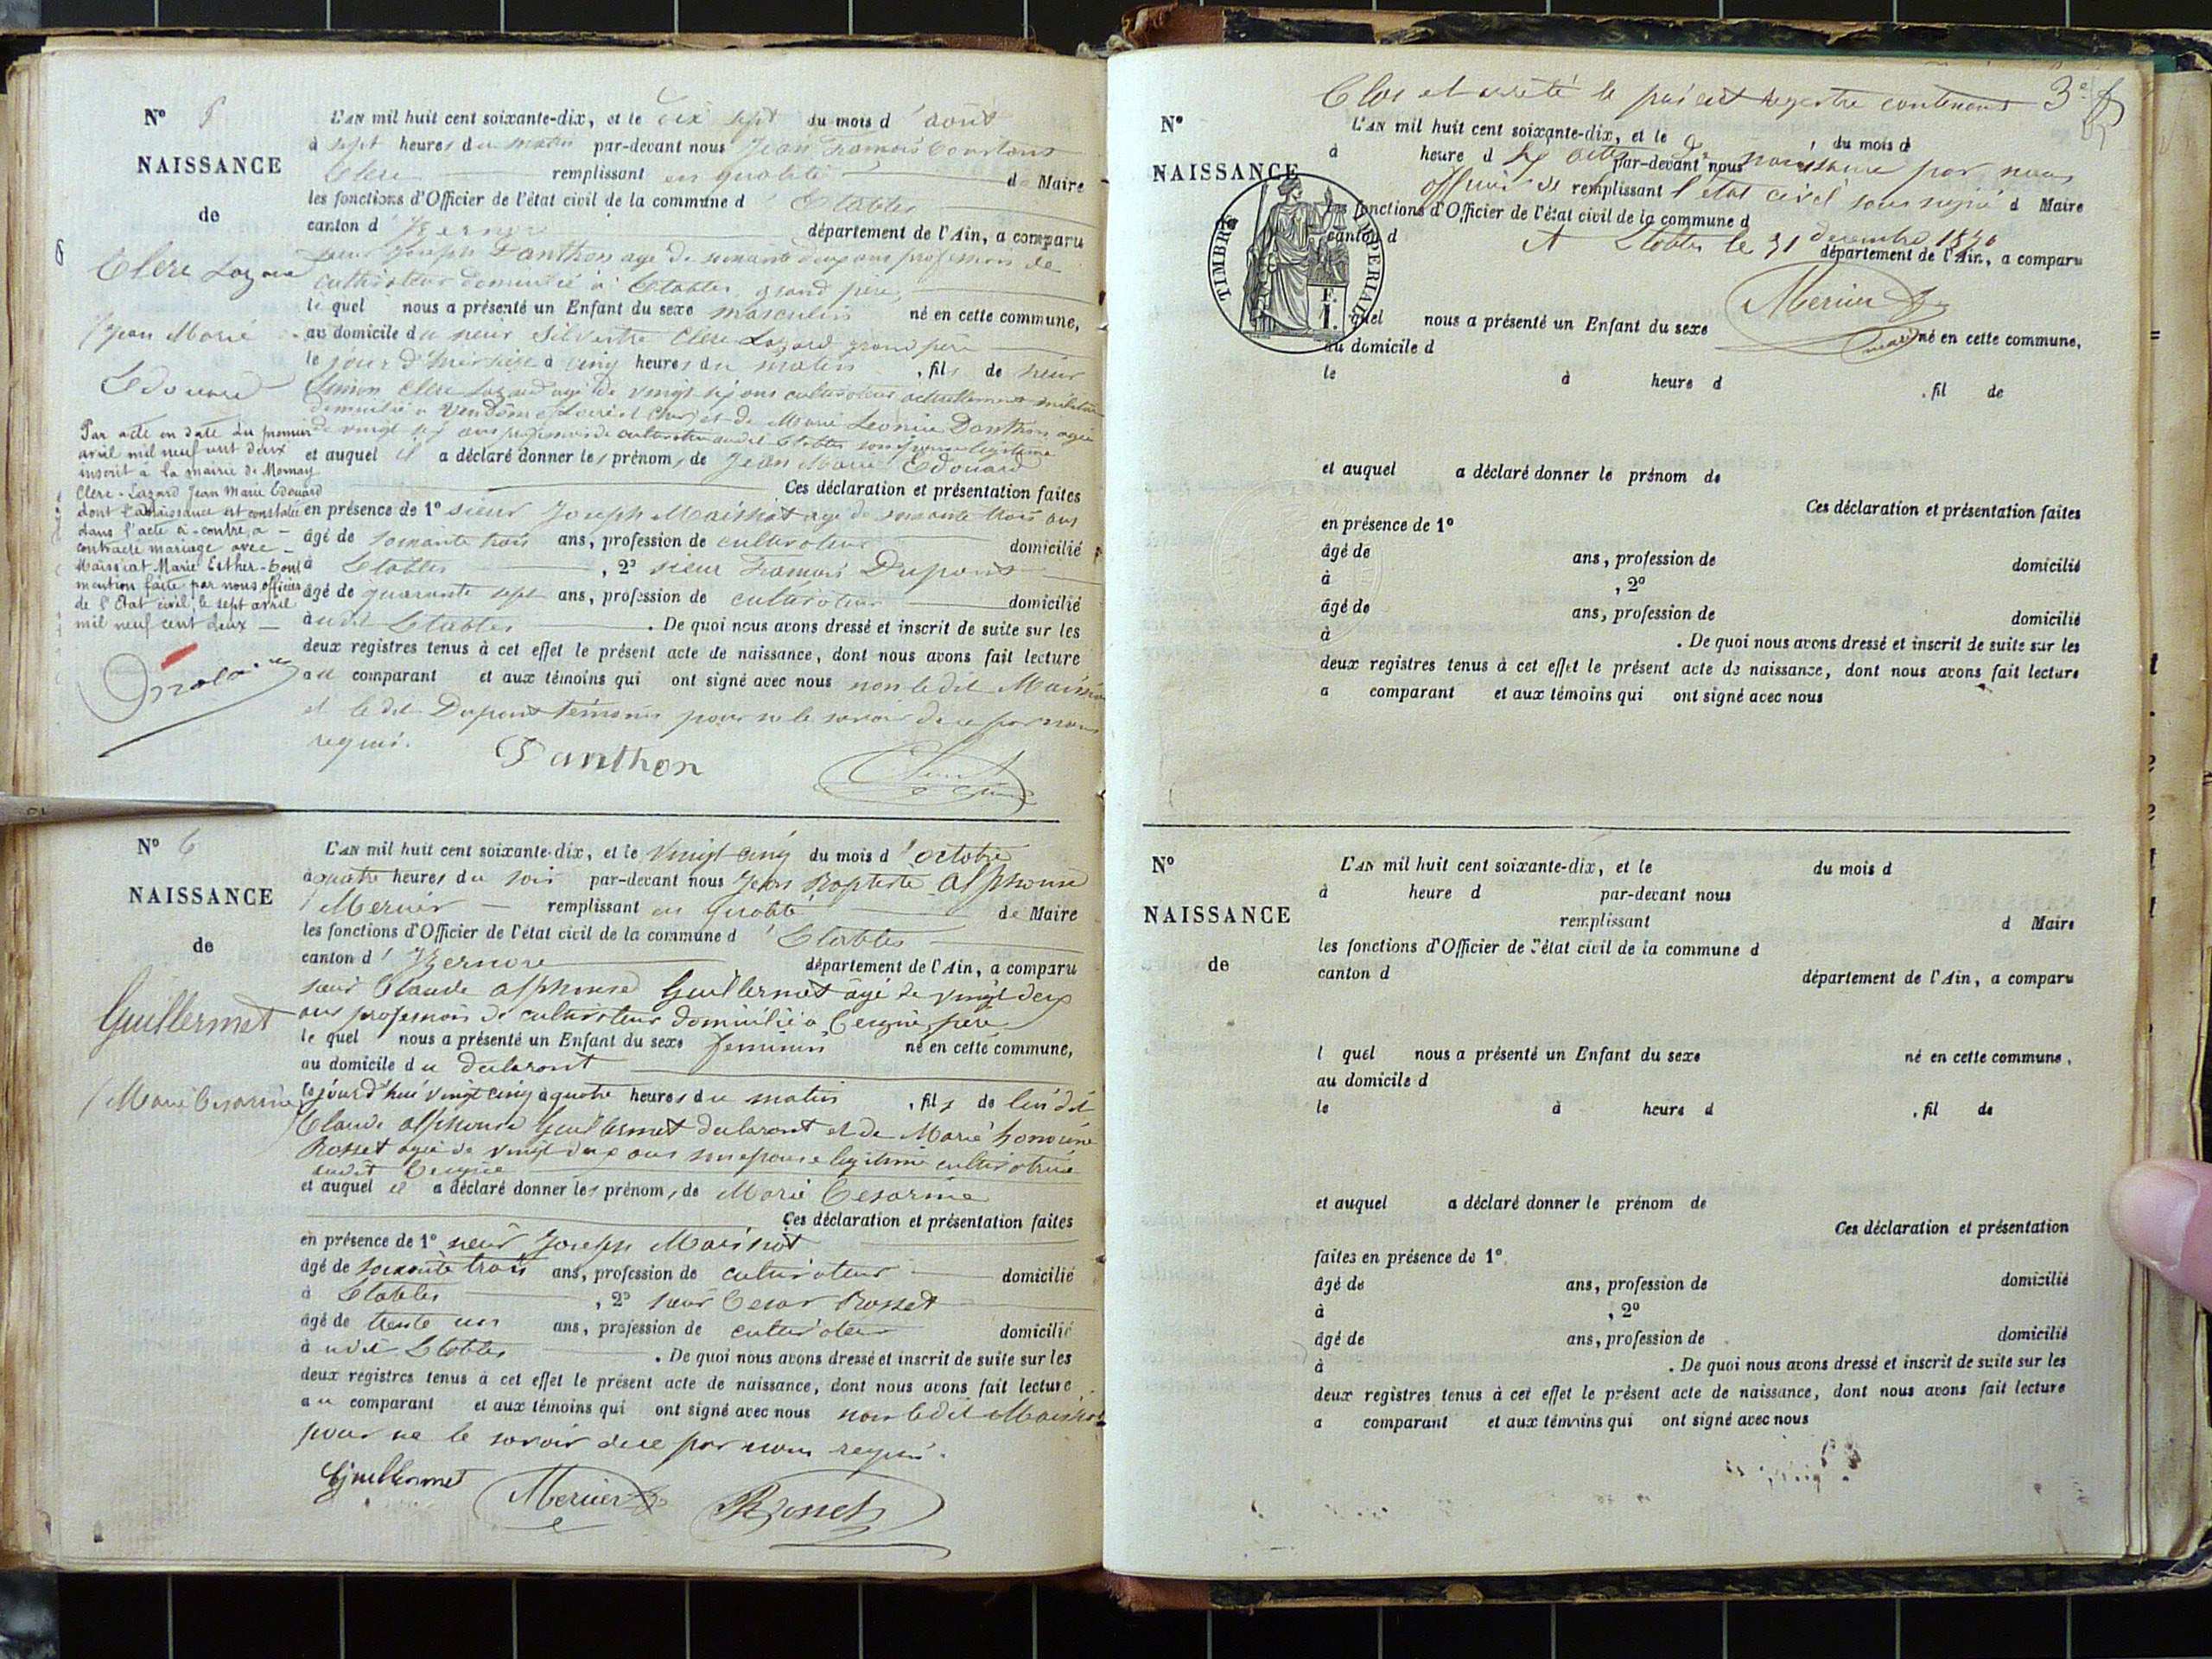 N° 5
NAISSANCE
de
Clerc Lazard
Jean Marie
Edouard
Par acte en date du premier
avril mil neuf cent deux
inscrit à la mairie de Mornay
Clerc-Lazard Jean Marie Edouard
dont la naissance est constatée
dans l'acte ci-contre, a
contracté mariage avec
Maissiat Marie Esther - Dont
mention faite par nous officier
de l'Etat civil, le sept avril
mil neuf cent deux
L'AN mil huit cent soixante-dix, et le dix sept du mois d'août
à sept heures du matin par-devant nous Jean François Constant
Clerc remplissant en qualité de Maire
les fonctions d'Officier de l'état civil de la commune d'Etables
canton d'Izernore département de l'Ain, a comparu
sieur Joseph Danthon agé de soixante deux ans profession de
cultivateur domicilié à Etables, grand père,
le quel nous a présenté un Enfant du sexe masculin né en cette commune,
au domicile du sieur Silvestre Clerc Lazard grand père
le jour d'hier seize à cinq heures du matin, fils de sieur
Simon Clerc Lazard agé de vingt six ans cultivateur actuellement militaire
domicilié à Vendôme Loir et Cher et de Marie Leonie Danthon agée
de vingt six ans profession de cultivatrice audit Etables son épouse légitime
et auquel il a déclaré donner les prénoms de Jean Marie Edouard
Ces déclaration et présentation faites
en présence de 1° sieur Joseph Maissiat agé de soixante trois ans
âgé de soixante trois ans, profession de cultivateur domicilié
à Etables, 2° sieur François Dupont
âgé de quarante sept ans, profession de cultivateur domicilié
audit Etables. De quoi nous avons dressé et inscrit de suite sur les
deux registres tenus à cet effet le présent acte de naissance, dont nous avons fait lecture
au comparant et aux témoins qui ont signé avec nous non ledit Maissiat
et le dit Dupont témoins pour ne le savoir de ce par nous
requis.
Danthon
N° 6
NAISSANCE
de
Guillermet
Marie Cesarine
L'AN mil huit cent soixante-dix, et le vingt cinq du mois d'octobre
à quatre heures du soir par-devant nous Jean Baptiste Alphonse
Mercier remplissant en qualité de Maire
les fonctions d'Officier de l'état civil de la commune d'Etables
canton d'Izernore département de l'Ain, a comparu
sieur Claude Alphonse Guillermet âgé de vingt deux
ans profession de cultivateur domicilié à Ceignes, père
le quel nous a présenté un Enfant du sexe feminin né en cette commune,
au domicile du declarant
le jourd'hui vingt cinq à quatre heures du matin, fils de lui dit
Claude Alphonse Guillermet declarant et de Marie honorine
Rosset agée de vingt deux ans son epouse legitime cultivatrice
audit Ceignes
et auquel il a déclaré donner les prénoms de Marie Cesarine
Ces déclaration et présentation faites
en présence de 1° sieur Joseph Maissiat
âgé de soixante trois ans, profession de cultivateur domicilié
à Etables, 2° sieur Cesar Rosset
âgé de trente un ans, profession de cultivateur domicilié
audit Etables. De quoi nous avons dressé et inscrit de suite sur les
deux registres tenus à cet effet le présent acte de naissance, dont nous avons fait lecture
au comparant et aux témoins qui ont signé avec nous non ledit Maissiat
pour ne le savoir de ce par nous requis.
Guillermet Mercier Rosset
Clos et arrêté le présent registre contenant 3e f
six actes de naissance par nous
officier de l'état civil soussigné
A Etables le 31 decembre 1870
Mercier
maire
TIMBRE IMPERIAL
N°
NAISSANCE
L'AN mil huit cent soixante-dix, et le du mois d
à heure d par-devant nous
remplissant d Maire
les fonctions d'Officier de l'état civil de la commune d
canton d département de l'Ain, a comparu
quel nous a présenté un Enfant du sexe né en cette commune,
au domicile d
le à heure d , fil de
et auquel a déclaré donner le prénom de
Ces déclaration et présentation faites
en présence de 1°
âgé de ans, profession de domicilié
à , 2°
âgé de ans, profession de domicilié
à . De quoi nous avons dressé et inscrit de suite sur les
deux registres tenus à cet effet le présent acte de naissance, dont nous avons fait lecture
a comparant et aux témoins qui ont signé avec nous
N°
NAISSANCE
de
L'AN mil huit cent soixante-dix, et le du mois d
à heure d par-devant nous
remplissant d Maire
les fonctions d'Officier de l'état civil de la commune d
canton d département de l'Ain, a comparu
l quel nous a présenté un Enfant du sexe né en cette commune,
au domicile d
le à heure d , fil de
et auquel a déclaré donner le prénom de
Ces déclaration et présentation
faites en présence de 1°
âgé de ans, profession de domicilié
à , 2°
âgé de ans, profession de domicilié
à . De quoi nous avons dressé et inscrit de suite sur les
deux registres tenus à cet effet le présent acte de naissance, dont nous avons fait lecture
a comparant et aux témoins qui ont signé avec nous